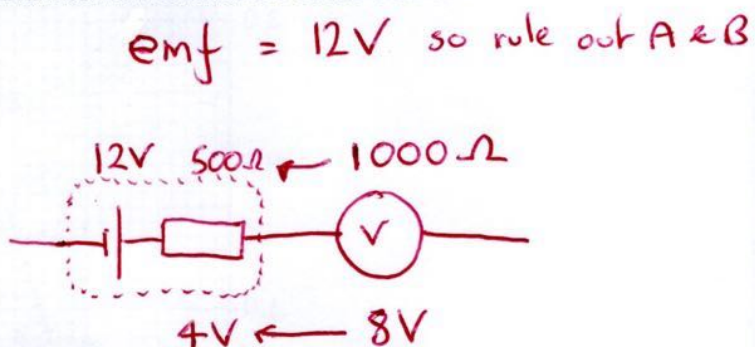 emf = 12V so rule out A & B
12V 500Ω ← 1000Ω
V
4V ← 8V